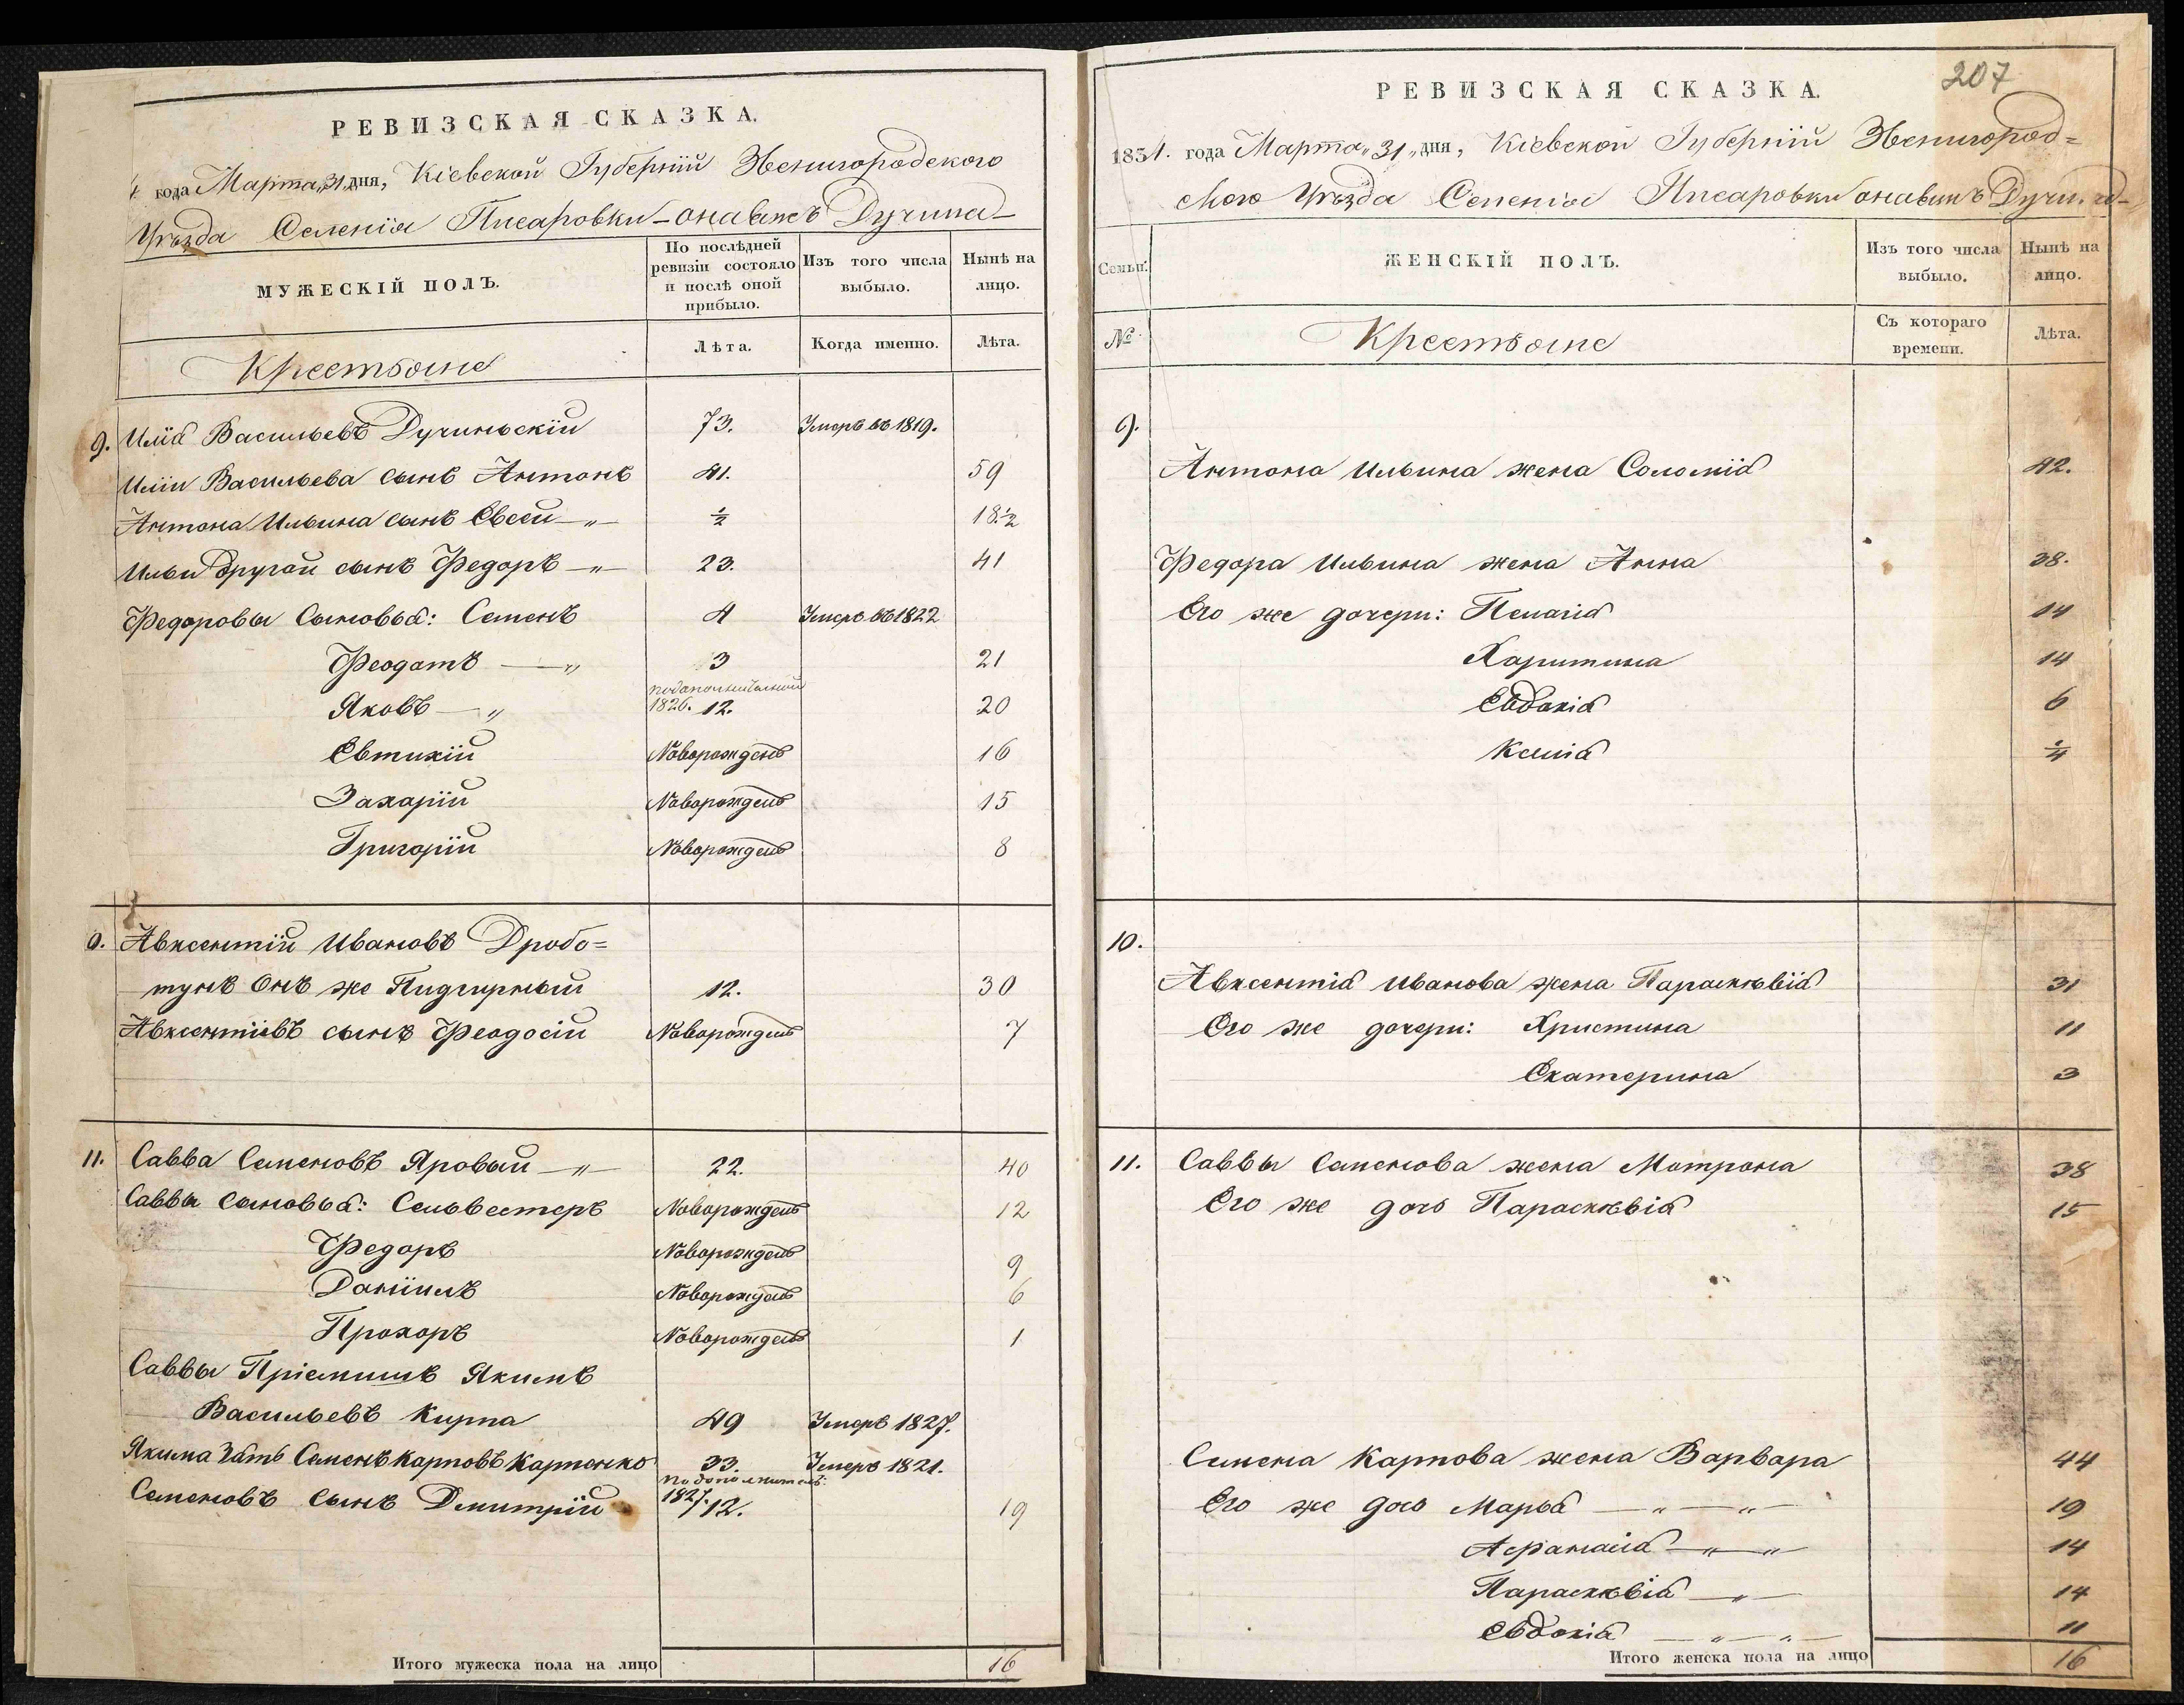 РЕВИЗСКАЯ СКАЗКА.
года Марта „31„ дня, Кіевской Губерніи Звенигородского
Уѣзда Селенія Писаровки-онаяжъ Дучина-
МУЖЕСКІЙ ПОЛЪ.
По послѣдней ревизіи состояло и послѣ оной прибыло.
Изъ того числа выбыло.
Нынѣ на лицо.
Крестьяне
Лѣта.
Когда именно.
Лѣта.
9. Илія Васильевъ Дучиньскій 73. Умеръ въ 1819.
Иліи Васильева сынъ Антонъ 41. 59
Антона Ильина сынъ Евсей —„— ½ 18.½
Ильи другой сынъ Федоръ —„— 23. 41
Федоровы Сыновья: Семенъ 4 Умеръ въ 1822
Феодотъ —„ 3 21
Яковъ —„ 1826. 12. 20
Евтихій Новорожденъ 16
Захарій Новорожденъ 15
Григорій Новорожденъ 8
0. Авксентій Ивановъ Дробо=
тунъ Онъ же Пидгирный 12. 30
Авксентіевъ сынъ Феодосій Новорожденъ 7
11. Савва Семеновъ Яровый —„— 22. 40
Саввы сыновья: Сельвестеръ Новорожденъ 12
Федоръ Новорожденъ 9
Даніилъ Новорожденъ 6
Прохоръ Новорожденъ 1
Саввы Пріемышъ Якимъ
Васильевъ Кирпа 49 Умеръ 1827.
Якима Зять Семенъ Карповъ Карпенко 33. Умеръ 1821.
по дополнител:
Семеновъ Сынъ Дмитрій 1827. 12. 19
Итого мужеска пола на лицо 16
207
РЕВИЗСКАЯ СКАЗКА.
1834. года Марта „31„ дня, Кіевской Губерніи Звенигород=
ского Уѣзда Селенія Писаровки онаяжъ
Семьи.
ЖЕНСКІЙ ПОЛЪ.
Изъ того числа выбыло.
Нынѣ на лицо.
№
Крестьяне
Съ котораго времени.
Лѣта.
9.
Антона Ильина жена Соломія 42.
Федора Ильина жена Анна 38.
Его же дочери: Пелагія 14
Харитина 14
Евдокія 6
Ксенія ¼
10.
Авксентія Иванова жена Параскѣвія 31
Его же дочери: Христина 11
Екатерина 3
11. Саввы Семенова жена Матрона 38
Его же дочь Параскѣвія 15
Семена Карпова жена Варвара 44
Его же дочь Марья —„—„— 19
Афанасія —„—„ 14
Параскѣвія —„— 14
Евдокія —„—„— 11
Итого женска пола на лицо 16